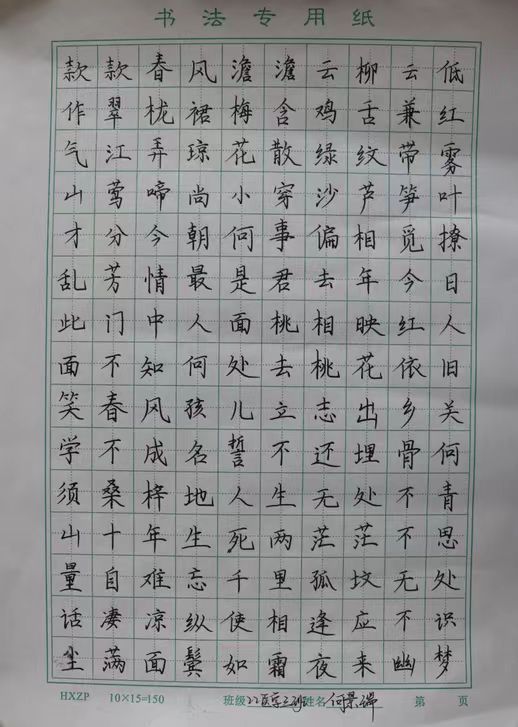 书法专用纸
款款春风澹澹云柳云低
作翠栊裙梅含鸡舌兼红
气江弄琼花散绿纹带雾
山莺啼尚小穿沙芦笋叶
才分今朝何事偏相觅撩
乱芳情最是君去年今日
此门中人面桃相映红人
面不知何处去桃花依旧
笑春风孩儿立志出乡关
学不成名誓不还埋骨何
须桑梓地人生无处不青
山十年生死两茫茫不思
量自难忘千里孤坟无处
话凄凉纵使相逢应不识
尘满面鬓如霜夜来幽梦
HXZP 10×15=150 班级 姓名 第 页